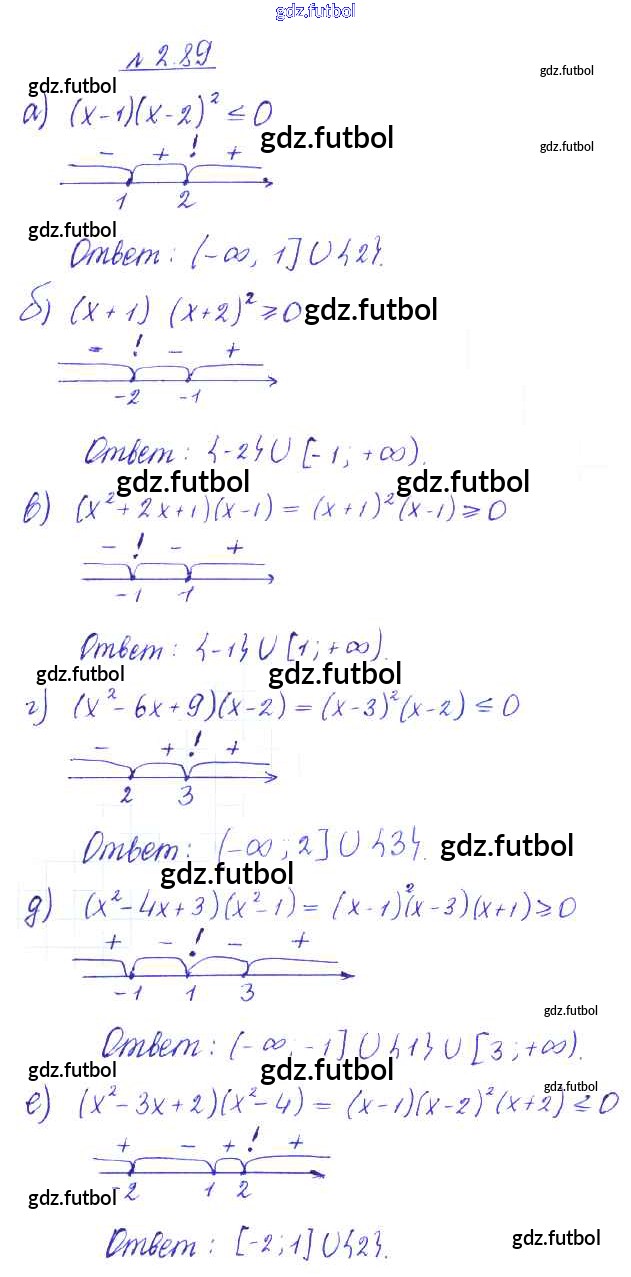 gdz.futbol
№ 2.89
gdz.futbol
gdz.futbol
а) (x-1)(x-2)² ≤ 0
gdz.futbol
gdz.futbol
- + ! +
1 2
gdz.futbol
Ответ: (-∞, 1]∪{2}.
б) (x+1) (x+2)² ≥ 0
gdz.futbol
- ! - +
-2 -1
Ответ: {-2}∪[-1; +∞).
gdz.futbol gdz.futbol
в) (x²+2x+1)(x-1) = (x+1)²(x-1) ≥ 0
- ! - +
-1 1
Ответ: {-1}∪[1; +∞).
gdz.futbol gdz.futbol
г) (x²-6x+9)(x-2) = (x-3)²(x-2) ≤ 0
- + ! +
2 3
Ответ: (-∞; 2]∪{3}.
gdz.futbol
gdz.futbol
д) (x²-4x+3)(x²-1) = (x-1)²(x-3)(x+1) ≥ 0
+ - ! - +
-1 1 3
gdz.futbol
Ответ: (-∞, -1]∪{1}∪[3; +∞).
gdz.futbol gdz.futbol
gdz.futbol
е) (x²-3x+2)(x²-4) = (x-1)(x-2)²(x+2) ≤ 0
+ - + ! +
-2 1 2
gdz.futbol
Ответ: [-2; 1]∪{2}.
gdz.futbol